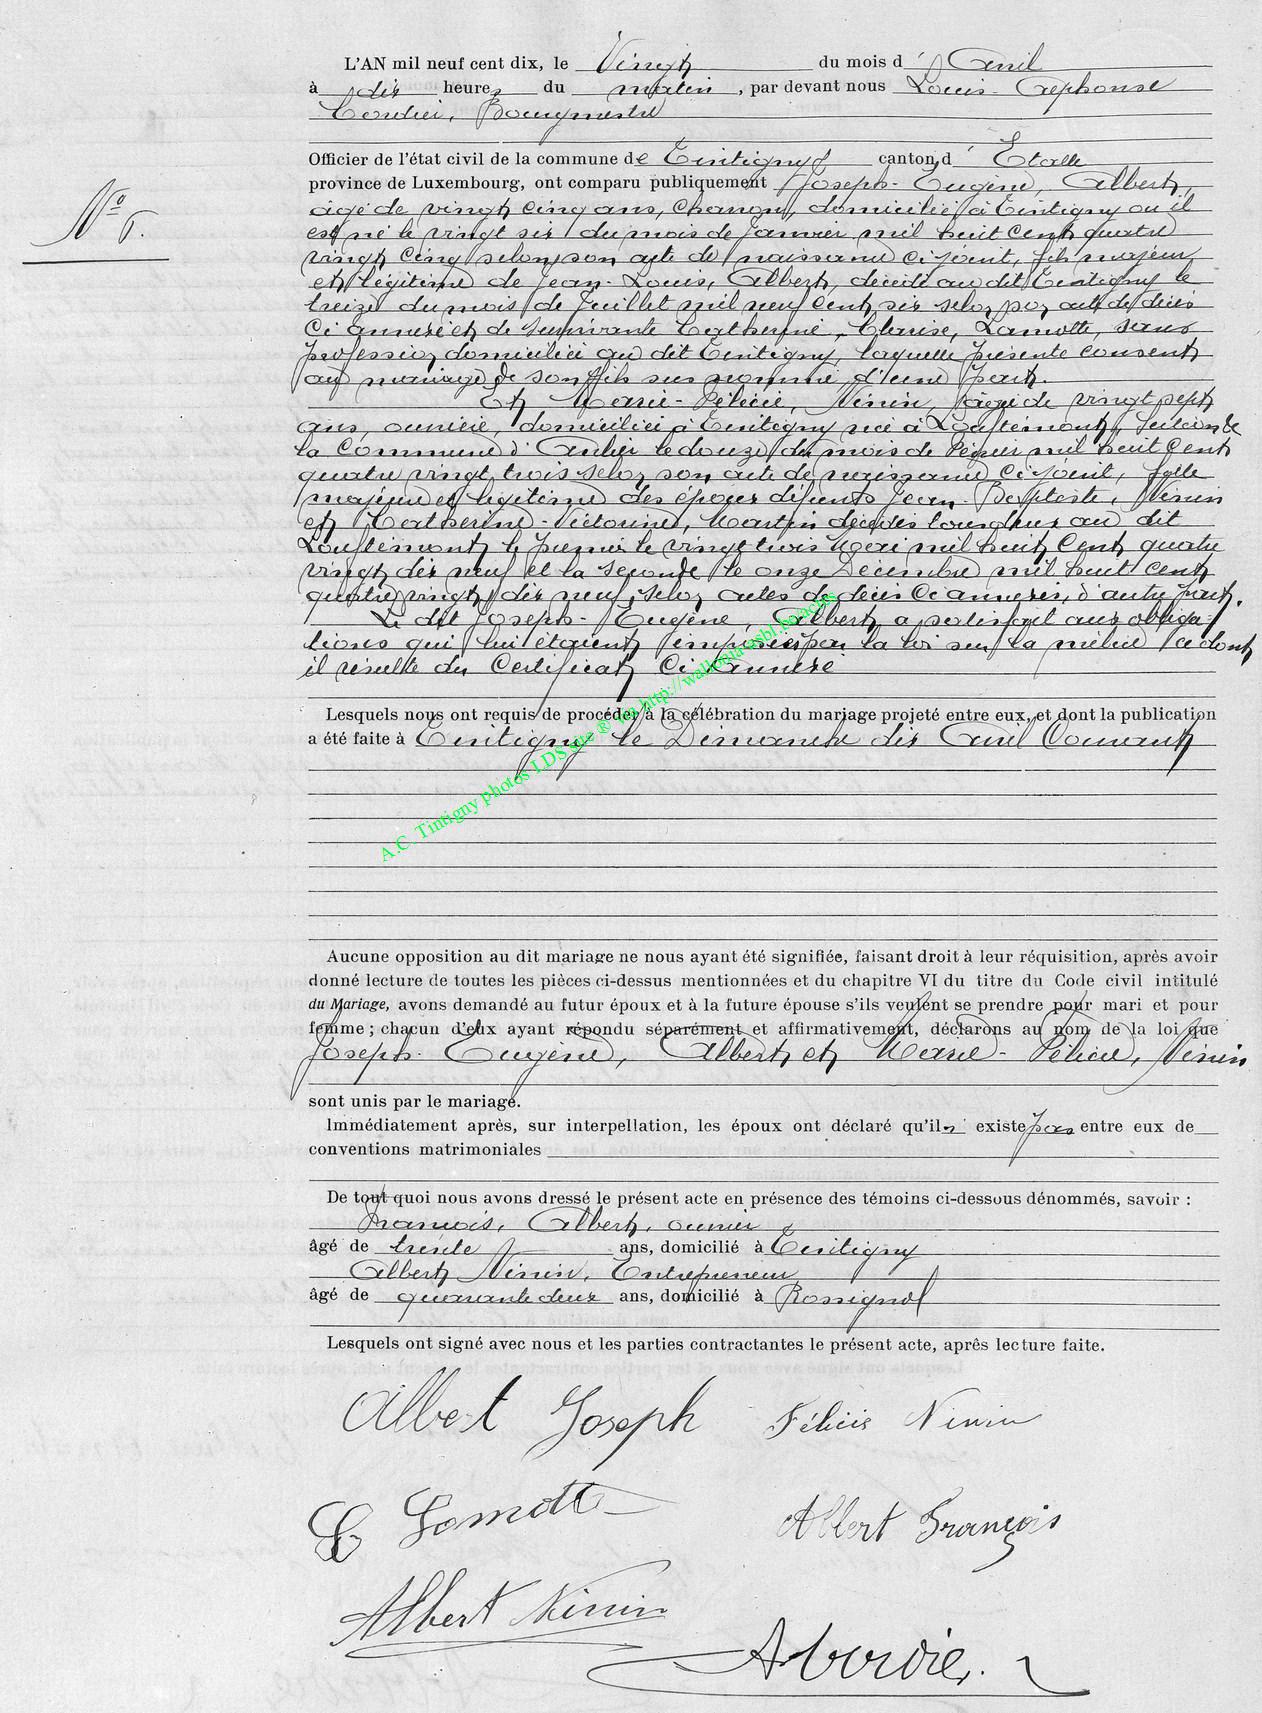 L'AN mil neuf cent dix, le Vingt du mois d' Avril
à dix heures du matin, par devant nous Louis-Alphonse
Cordier, Bourgmestre
Officier de l'état civil de la commune de Tintigny canton d' Etalle
province de Luxembourg, ont comparu publiquement Joseph-Eugène, Albert,
N° 6.
âgé de vingt cinq ans, domicilié à Tintigny où il
est né le vingt six du mois de Janvier mil huit cent quatre
vingt cinq selon son acte de naissance ci joint, fils majeur
et légitime de Jean-Louis, Albert, décédé au dit Tintigny le
treize du mois de Juillet mil neuf cent six selon son acte de décès
ci annexé et de survivante Catherine, Clarise, Lamotte, sans
profession domiciliée au dit Tintigny, laquelle présente consent
au mariage de son fils sus nommé, d'une part.
Et Marie-Félicie, Ninin, âgée de vingt sept
ans, ouvrière, domiciliée à Tintigny née à Louftémont, section de
la commune d'Anlier le douze du mois de Février mil huit cent
quatre vingt trois selon son acte de naissance ci joint, fille
majeure et légitime des époux défunts Jean-Baptiste, Ninin
et Catherine-Victorine, Martin décédés tous deux au dit
Louftémont, le premier le vingt trois Mai mil huit cent quatre
vingt dix neuf et la seconde le onze Décembre mil huit cent
quatre vingt dix neuf, selon actes de décès ci annexés, d'autre part.
Le dit Joseph-Eugène, Albert a satisfait aux obliga-
tions qui lui étaient imposées par la loi sur la milice ce dont
il résulte du certificat ci annexé
Lesquels nous ont requis de procéder à la célébration du mariage projeté entre eux, et dont la publication
a été faite à Tintigny le Dimanche dix Avril Courant
A.C. Tintigny photos LDS site ® via http://wallonia-asbl.be/actes
Aucune opposition au dit mariage ne nous ayant été signifiée, faisant droit à leur réquisition, après avoir
donné lecture de toutes les pièces ci-dessus mentionnées et du chapitre VI du titre du Code civil intitulé
du Mariage, avons demandé au futur époux et à la future épouse s'ils veulent se prendre pour mari et pour
femme ; chacun d'eux ayant répondu séparément et affirmativement, déclarons au nom de la loi que
Joseph-Eugène, Albert et Marie-Félicie, Ninin
sont unis par le mariage.
Immédiatement après, sur interpellation, les époux ont déclaré qu'il n existe pas entre eux de
conventions matrimoniales
De tout quoi nous avons dressé le présent acte en présence des témoins ci-dessous dénommés, savoir :
François, Albert, ouvrier
âgé de trente ans, domicilié à Tintigny
Albert Ninin, Entrepreneur
âgé de quarante deux ans, domicilié à Rossignol
Lesquels ont signé avec nous et les parties contractantes le présent acte, après lecture faite.
Albert Joseph Félicie Ninin
C Lamotte Albert François
Albert Ninin
A Cordier.